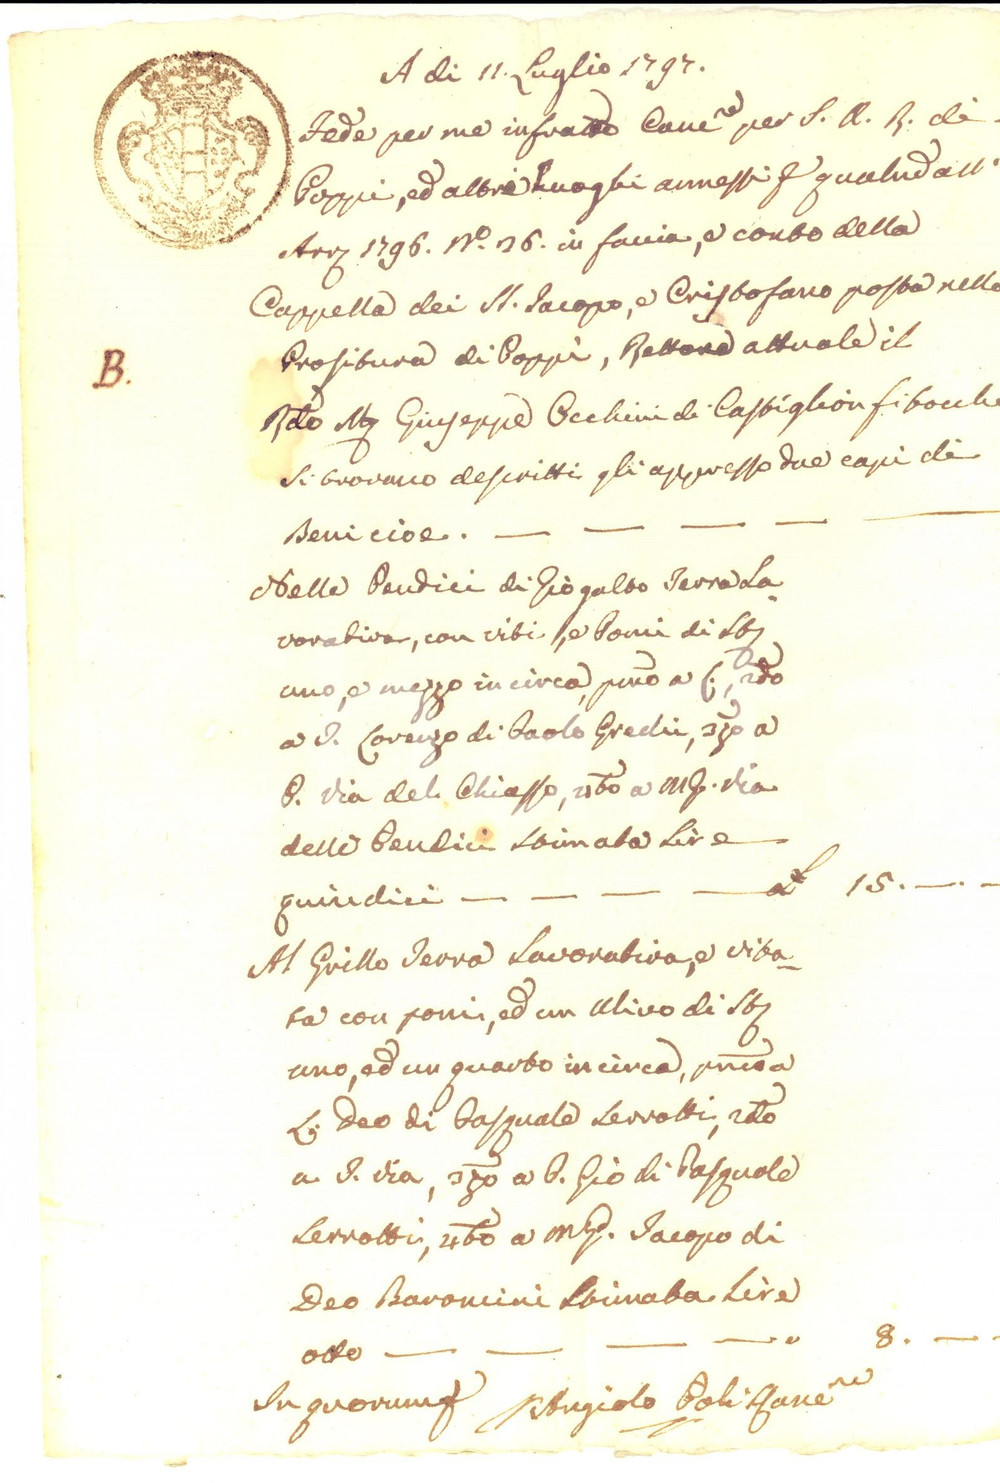 A di 11. Luglio 1797.
Fede per me infratto Canre per S. A. R. di
Poppi, ed altri Luoghi annessi qualmd all'
Arr 1796. No. 36. in faccia, e conto della
Cappella dei SS. Jacopo, e Cristofano posta nella
Prositura di Poppi, Rettore attuale il
B.
Rdo Giuseppe Occhini di Castiglion fibocchi
si trovano descritti gli appresso due capi di
Beni cioe. — — — — —
Nelle Pendici di Giogalto Terra La-
vorativa, con viti, e Pomi di St
uno, e mezzo in circa, pmo a L., 2do
a S. Lorenzo di Paolo Gredii, 3zo a
P. via del Chiasso, 4to a M. via
delle Pendici Stimata Lire
quindici — — — — — 15. — —
Al Grillo Terra Lavorativa, e vita-
ta con pomi, ed un Ulivo di St
uno, ed un quarto in circa, pmo a
L. Deo di Pasquale Serrotti, 2do
a S. via, 3zo a P. Gio di Pasquale
Serrotti, 4to a M. Jacopo di
Deo Baroncini Stimata Lire
otto — — — — 8. — —
In quorum Angiolo Poli Canre